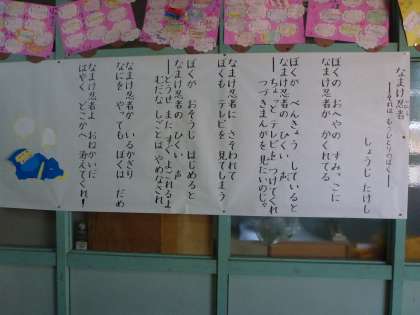 なまけ忍者
――それは、もうひとりのぼく――
しょうじ たけし
ぼくの おへやの すみっこに
なまけ忍者が かくれてる
ぼくが べんきょう していると
なまけ忍者の ひくい 声
――ちょっと テレビを つけてくれ
つづきまんがを 見たいのじゃ
なまけ忍者に さそわれて
ぼくも テレビを 見てしまう
ぼくが おそうじ はじめると
なまけ忍者の ひくい 声
――どうせ また すぐ よごれるよ
むだな しごとは やめなされ
なまけ忍者が いるかぎり
なにを やっても ぼくは だめ
なまけ忍者よ おねがいだ
はやく どこかへ 消えてくれ!